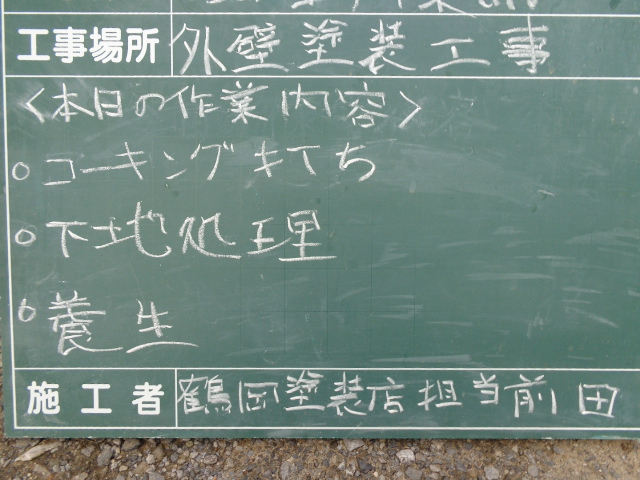 工事場所 外壁塗装工事
〈本日の作業内容〉
○ コーキング打ち
○ 下地処理
○ 養生
施工者 鶴岡塗装店担当前田